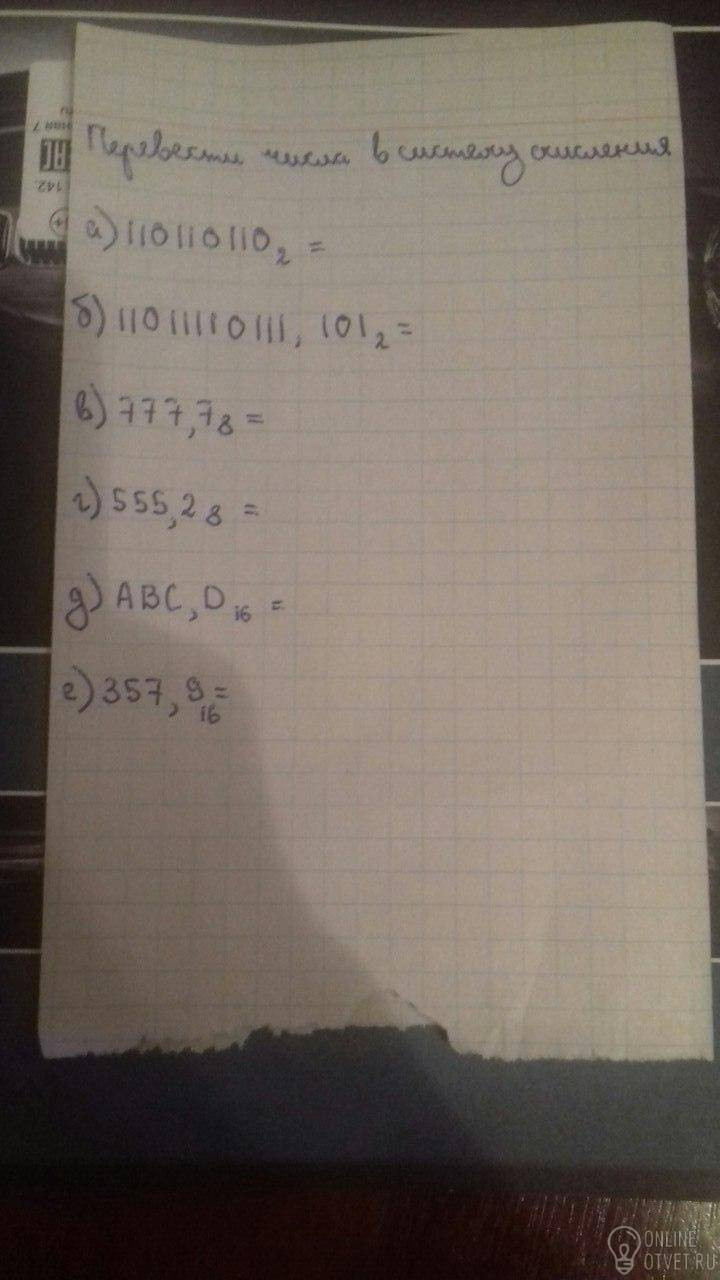 Перевести числа в систему счисления
а) 110110110₂ =
б) 11011110111, 101₂ =
в) 777,7₈ =
г) 555,2₈ =
д) ABC,D₁₆ =
е) 357,9₁₆ =
142.
ONLINE
OTVET.RU